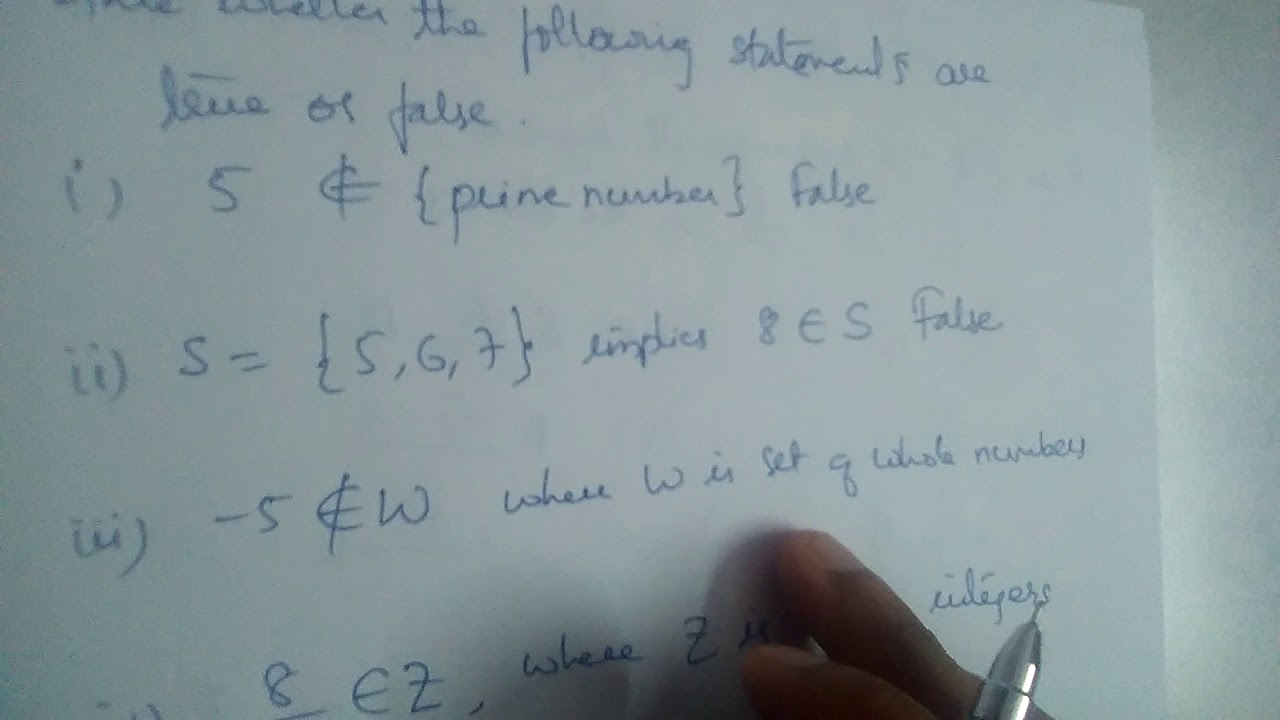 whether the following statements are
true or false.
i) 5 ∉ {prime number} False
ii) S = {5, 6, 7} implies 8 ∈ S False
iii) -5 ∉ W where W is set of whole numbers
8 ∈ Z, where Z is integers